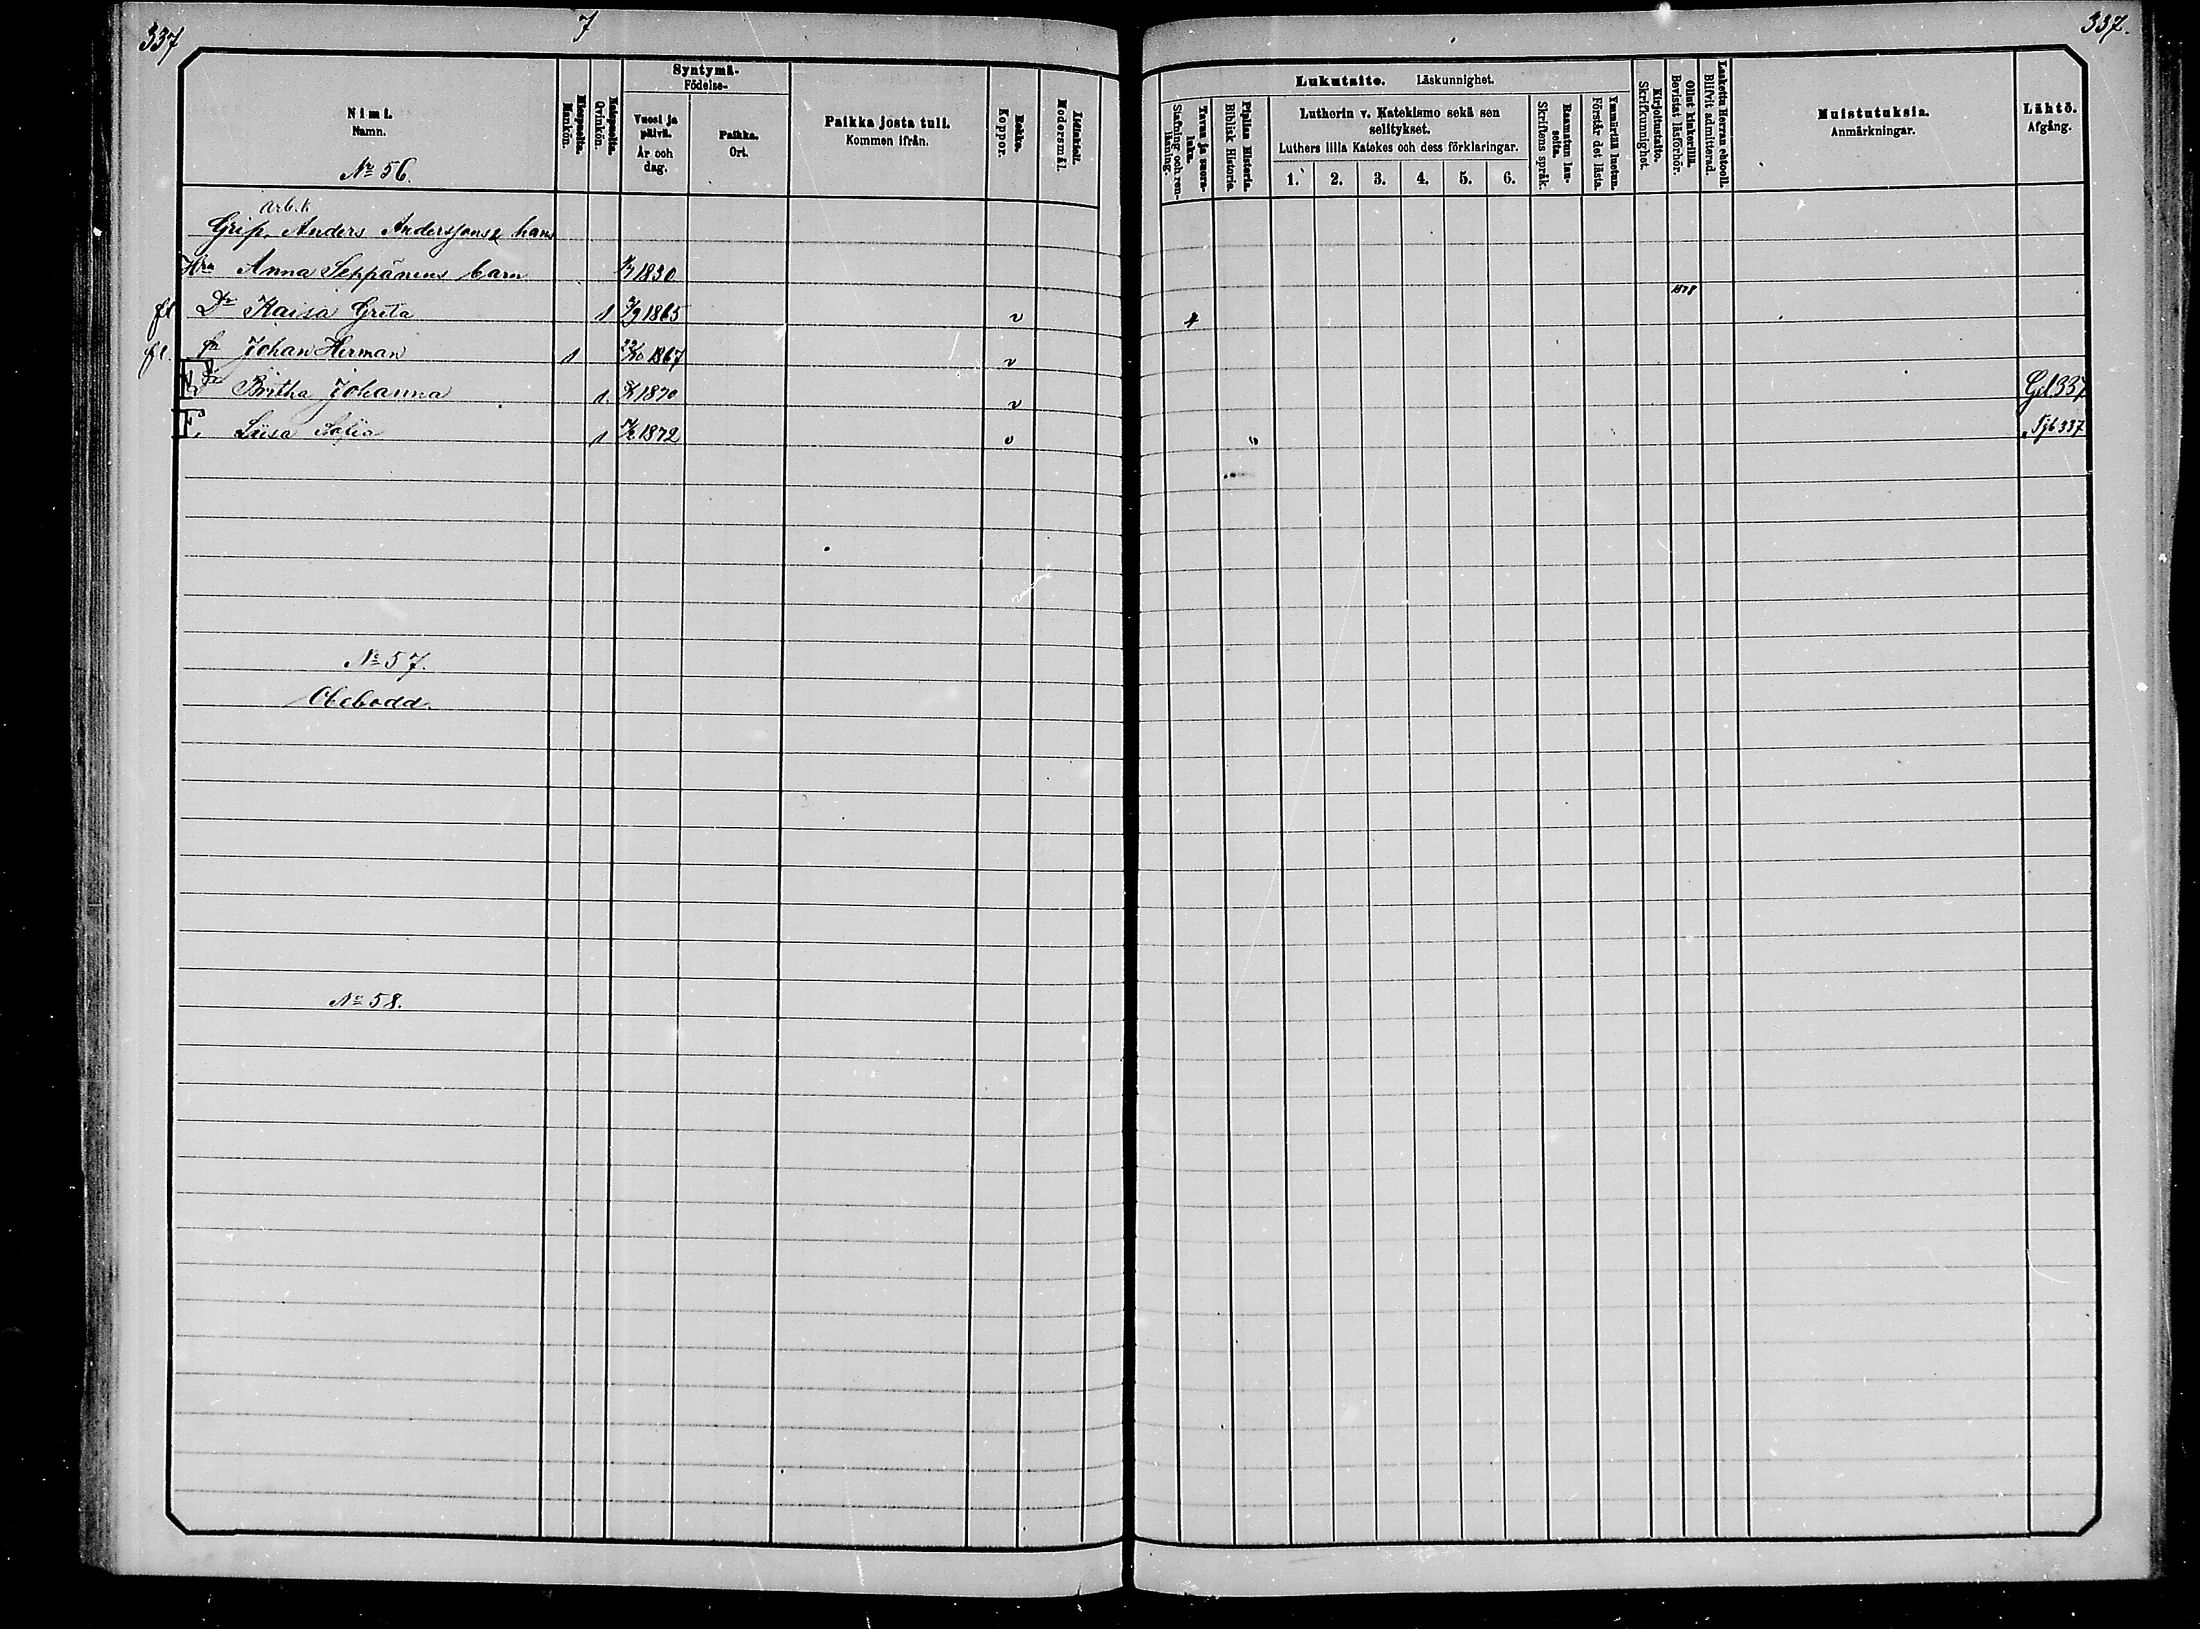 337
7
337.
Nimi.
Namn.
Miespuolia.
Mankön.
Qvinkön.
Syntymä-
Födelse-
Vuosi ja
päivä.
År och
dag.
Paikka.
Ort.
Paikka josta tuli.
Kommen ifrån.
Rokko.
Koppor.
Äidinkieli.
Modersmål.
Lukutaito. Läskunnighet.
Tavan ja suora-
luku.
Stafning och ren-
läsning.
Piplian Historia.
Biblisk Historie.
Luthorin v. Katekismo sekä sen
selitykset.
Luthers lilla Katekes och dess förklaringar.
1. 2. 3. 4. 5. 6.
Raamatun lau-
seita.
Skriftens språk.
Ymmärtää luetun.
Förstår det lästa.
Kirjoitustaito.
Skrifkunnighet.
Ollut kinkerillä.
Bevistat läsförhör.
Laskettu Herran ehtooll.
Blifvit admitterad.
Muistutuksia.
Anmärkningar.
Lähtö.
Afgång.
No 56.
Arb.k.
Grip, Anders Anderssons & hans
Hru Anna Seppänens barn 1830
fl Dr Kaisa Greta 1 1865 v 1878
fl. Johan Herman 1 1867 v
Dr Britha Johanna 1. 1870 v Gel 337
F. Liisa Sofia 1 1872 v 337
No 57.
Obebodd.
No 58.